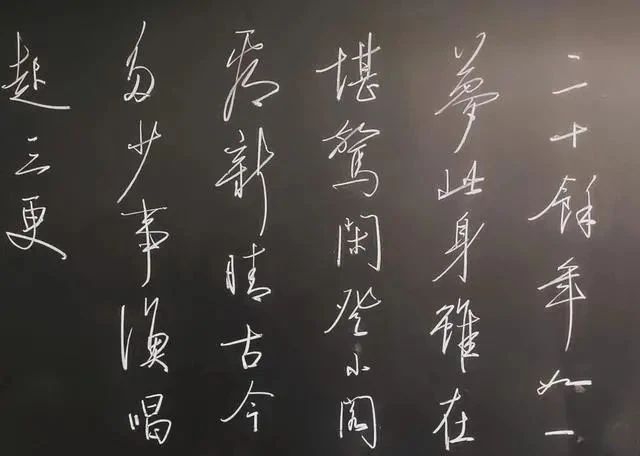 二十餘年如一
夢此身雖在
堪驚閑登小閣
看新晴古今
多少事漁唱
起三更